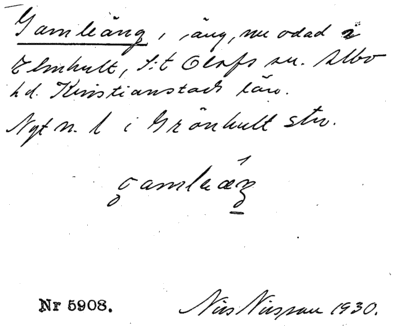 Gamleäng, äng, nu odad i
Elmhult, S:t Olofs sn. Albo
hd. Kristianstads län.
Nyt n. l i Grönhult str.
gamleæŋ
Nr 5908. Nils Nilsson 1930.